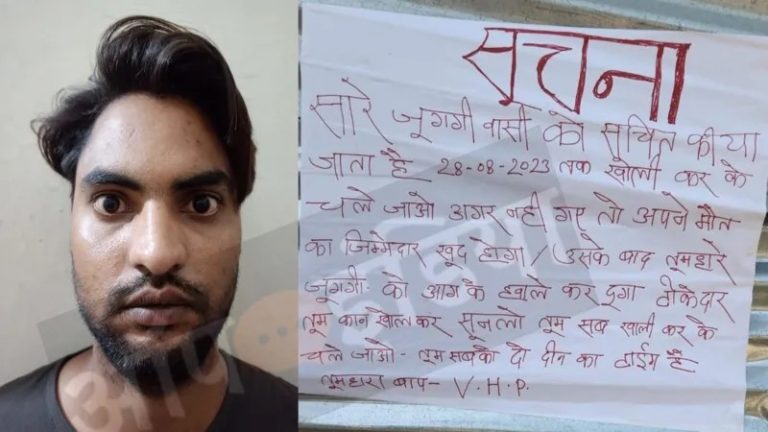 सूचना
सारे जूगगी वासी को सुचित कीया
जाता है 28-08-2023 तक खाली कर के
चले जाओ अगर नही गए तो अपने मौत
का जिम्मेदार खुद होगा / उसके बाद तूमहारे
जूगगी को आग के हवाले कर दुगा ठीकेदार
तूम कान खोल कर सूनलो तूम सब खाली कर के
चले जाओ - तूम सबको दो दीन का टाईम है
तूमहारा बाप - V.H.P.
आप इंडिया